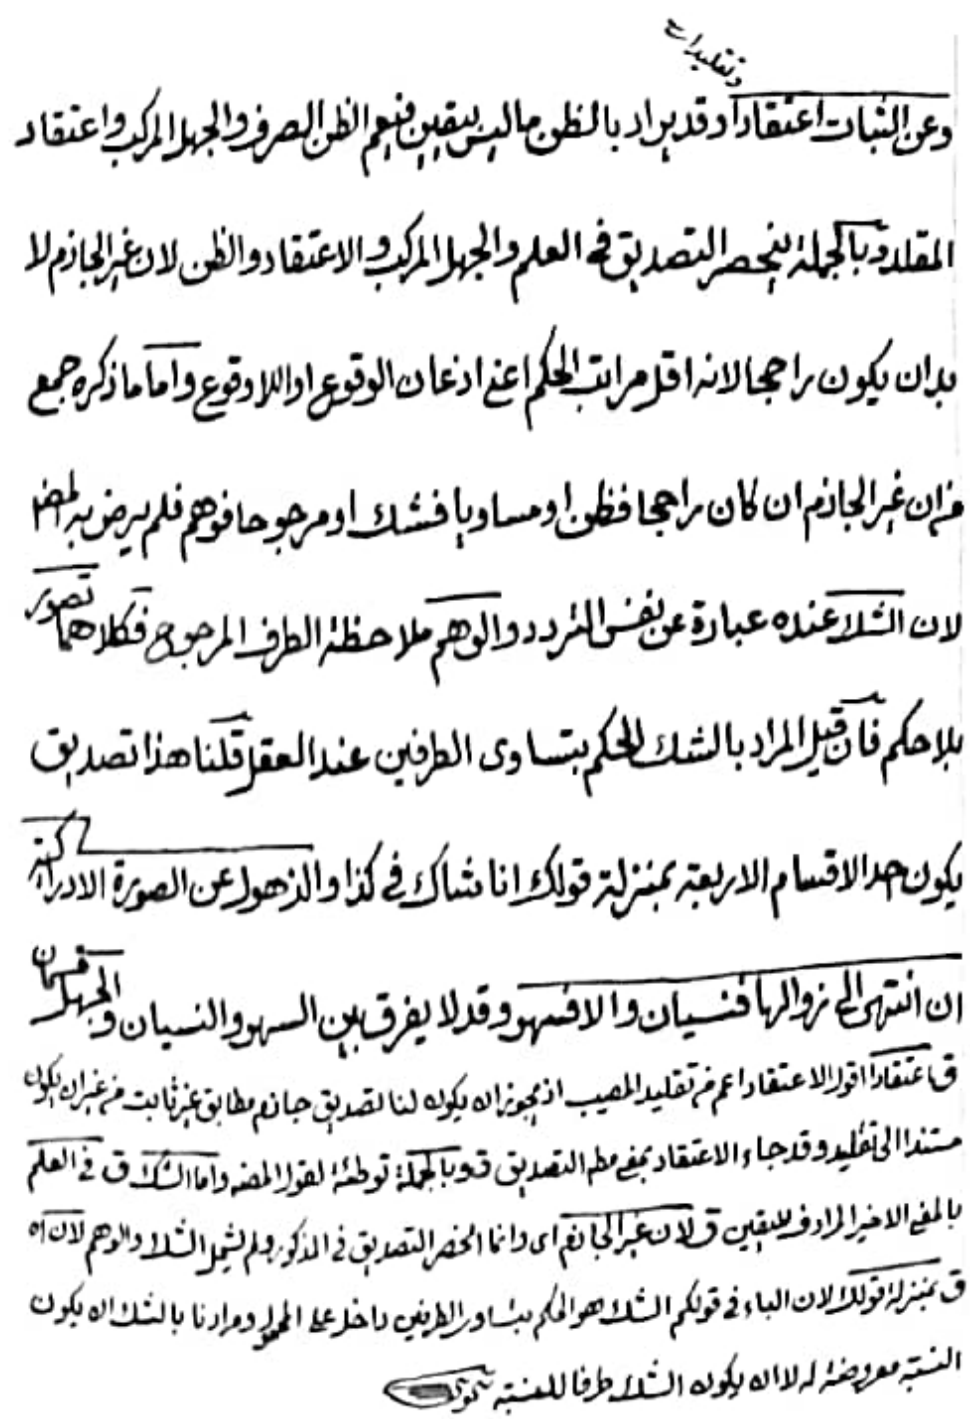 وتقليدات
وعن الثبات اعتقادا وقد يراد بالظن ما ليس بيقين فيعم الظن الصرف والجهل المركب واعتقاد
المقلد وبالجملة ينحصر التصديق في العلم والجهل المركب والاعتقاد والظن لان غير الجازم لا
بد ان يكون راجحا لانه اقل مراتب الحكم اعني اذعان الوقوع او اللاوقوع واما ما ذكره جمع
من ان غير الجازم ان كان راجحا فظن او مساويا فشك او مرجوحا فوهم فلم يرض به المص
لان الشك عنده عبارة عن نفس التردد والوهم ملاحظة الطرف المرجوح فكلاهما تصور
بلا حكم فان قيل المراد بالشك الحكم بتساوى الطرفين عند العقل قلنا هذا تصديق
يكون احد الاقسام الاربعة بمنزلة قولك انا شاك في كذا والذهول عن الصورة الادراكية
ان انتهى الى زوالها فنسيان والا فسهو وقد لا يفرق بين السهو والنسيان والجهل قسمان
ق اعتقادا اقول الاعتقاد اعم من تقليد المصيب اذ يجوز ان يكون لنا تصديق جازم مطابق غير ثابت من غير ان يكون
مستندا الى تقليد وقد جاء الاعتقاد بمعنى مطلق التصديق ق وبالجملة توطئة لقول المصنف واما الشك ق في العلم
بالمعنى الاخير المرادف لليقين ق لان غير الجازم اى وانما انحصر التصديق في المذكور ولم يشمل الشك والوهم لان اه
ق بمنزلة قولك لان الباء في قولكم الشك هو الحكم بتساوى الطرفين داخل على المحمول ومرادنا بالشك ان يكون
النسبة معروضة له لا ان يكون الشك طرفا للنسبة